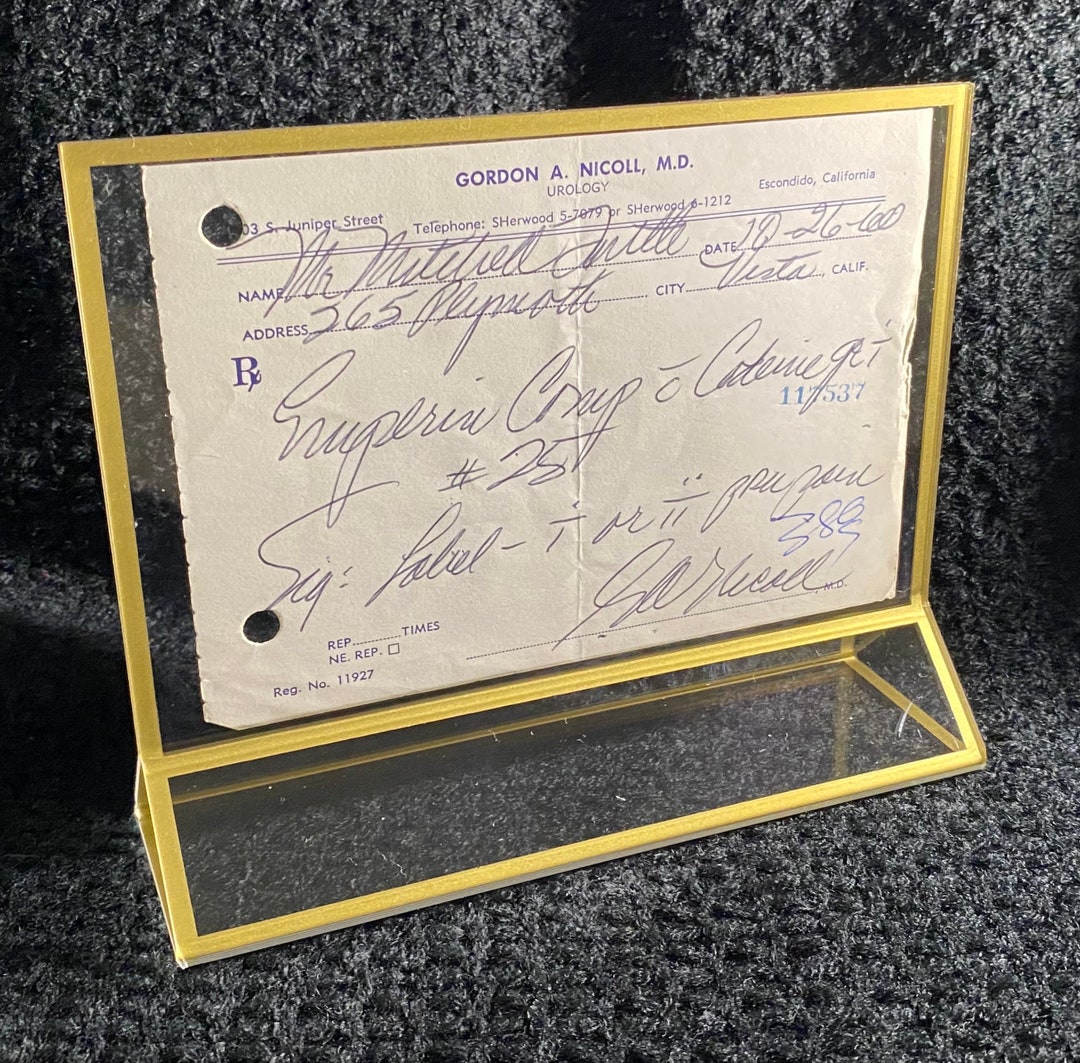 GORDON A. NICOLL, M.D.
UROLOGY
03 S. Juniper Street Telephone: SHerwood 5-7079 or SHerwood 6-1212 Escondido, California
NAME Mr Mitchell DATE 10-26-60
ADDRESS 265 Plymoth CITY Vista, CALIF.
Rx
Comp c̄ Codeine gr i
117537
# 25
Sig: Label - i or ii prn pain
389
GA Nicoll M.D.
REP. TIMES
NE. REP. ☐
Reg. No. 11927